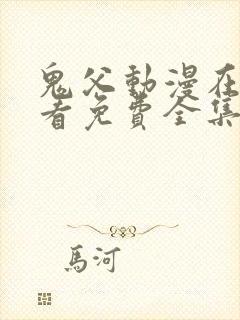 鬼父動漫在
看免費全集
馬河